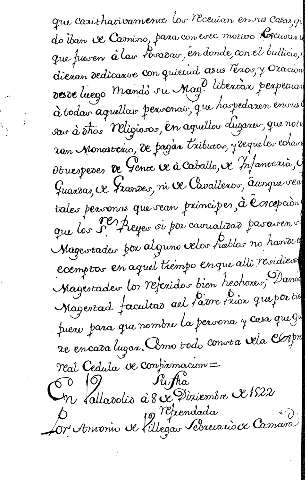 que caritativamente los recevian en sus casas, qu
do iban de Camino, para con este motivo
que fuesen à las Posadas, en donde, con el bullicio,
dieran dedicarse con quietud a sus rezos, y oracion
desde luego Mandó su Mag.d libertar perpetuam
à todas aquellas personas, que hospedaren en sus
sas à dhos Religiosos, en aquellos Lugares, que no
ran Monasterio, de pagar tributos, y de que les echasen
Huespedes de Gente de à Caballo, de Infanteria, de
Guardas, de Grandes, ni de Cavalleros, aunque sean
tales personas que sean principes, à excepcion
que los S.res Reyes si por casualidad pasaren
Magestades por alguno de los Pueblos no han de
exemptos en aquel tiempo en que alli residieren
Magestades los referidos bien hechores, Dando
Magestad facultad al Padre Prior que por tiempo
fuere para que nombre la persona y casa que
re en cada lugar. Como todo consta de la
real Cedula de confirmacion=
Su fha
En Valladolid à 8 de Diziembre de 1522
refrendada
Por Antonio de Villegas Secretario de Camara